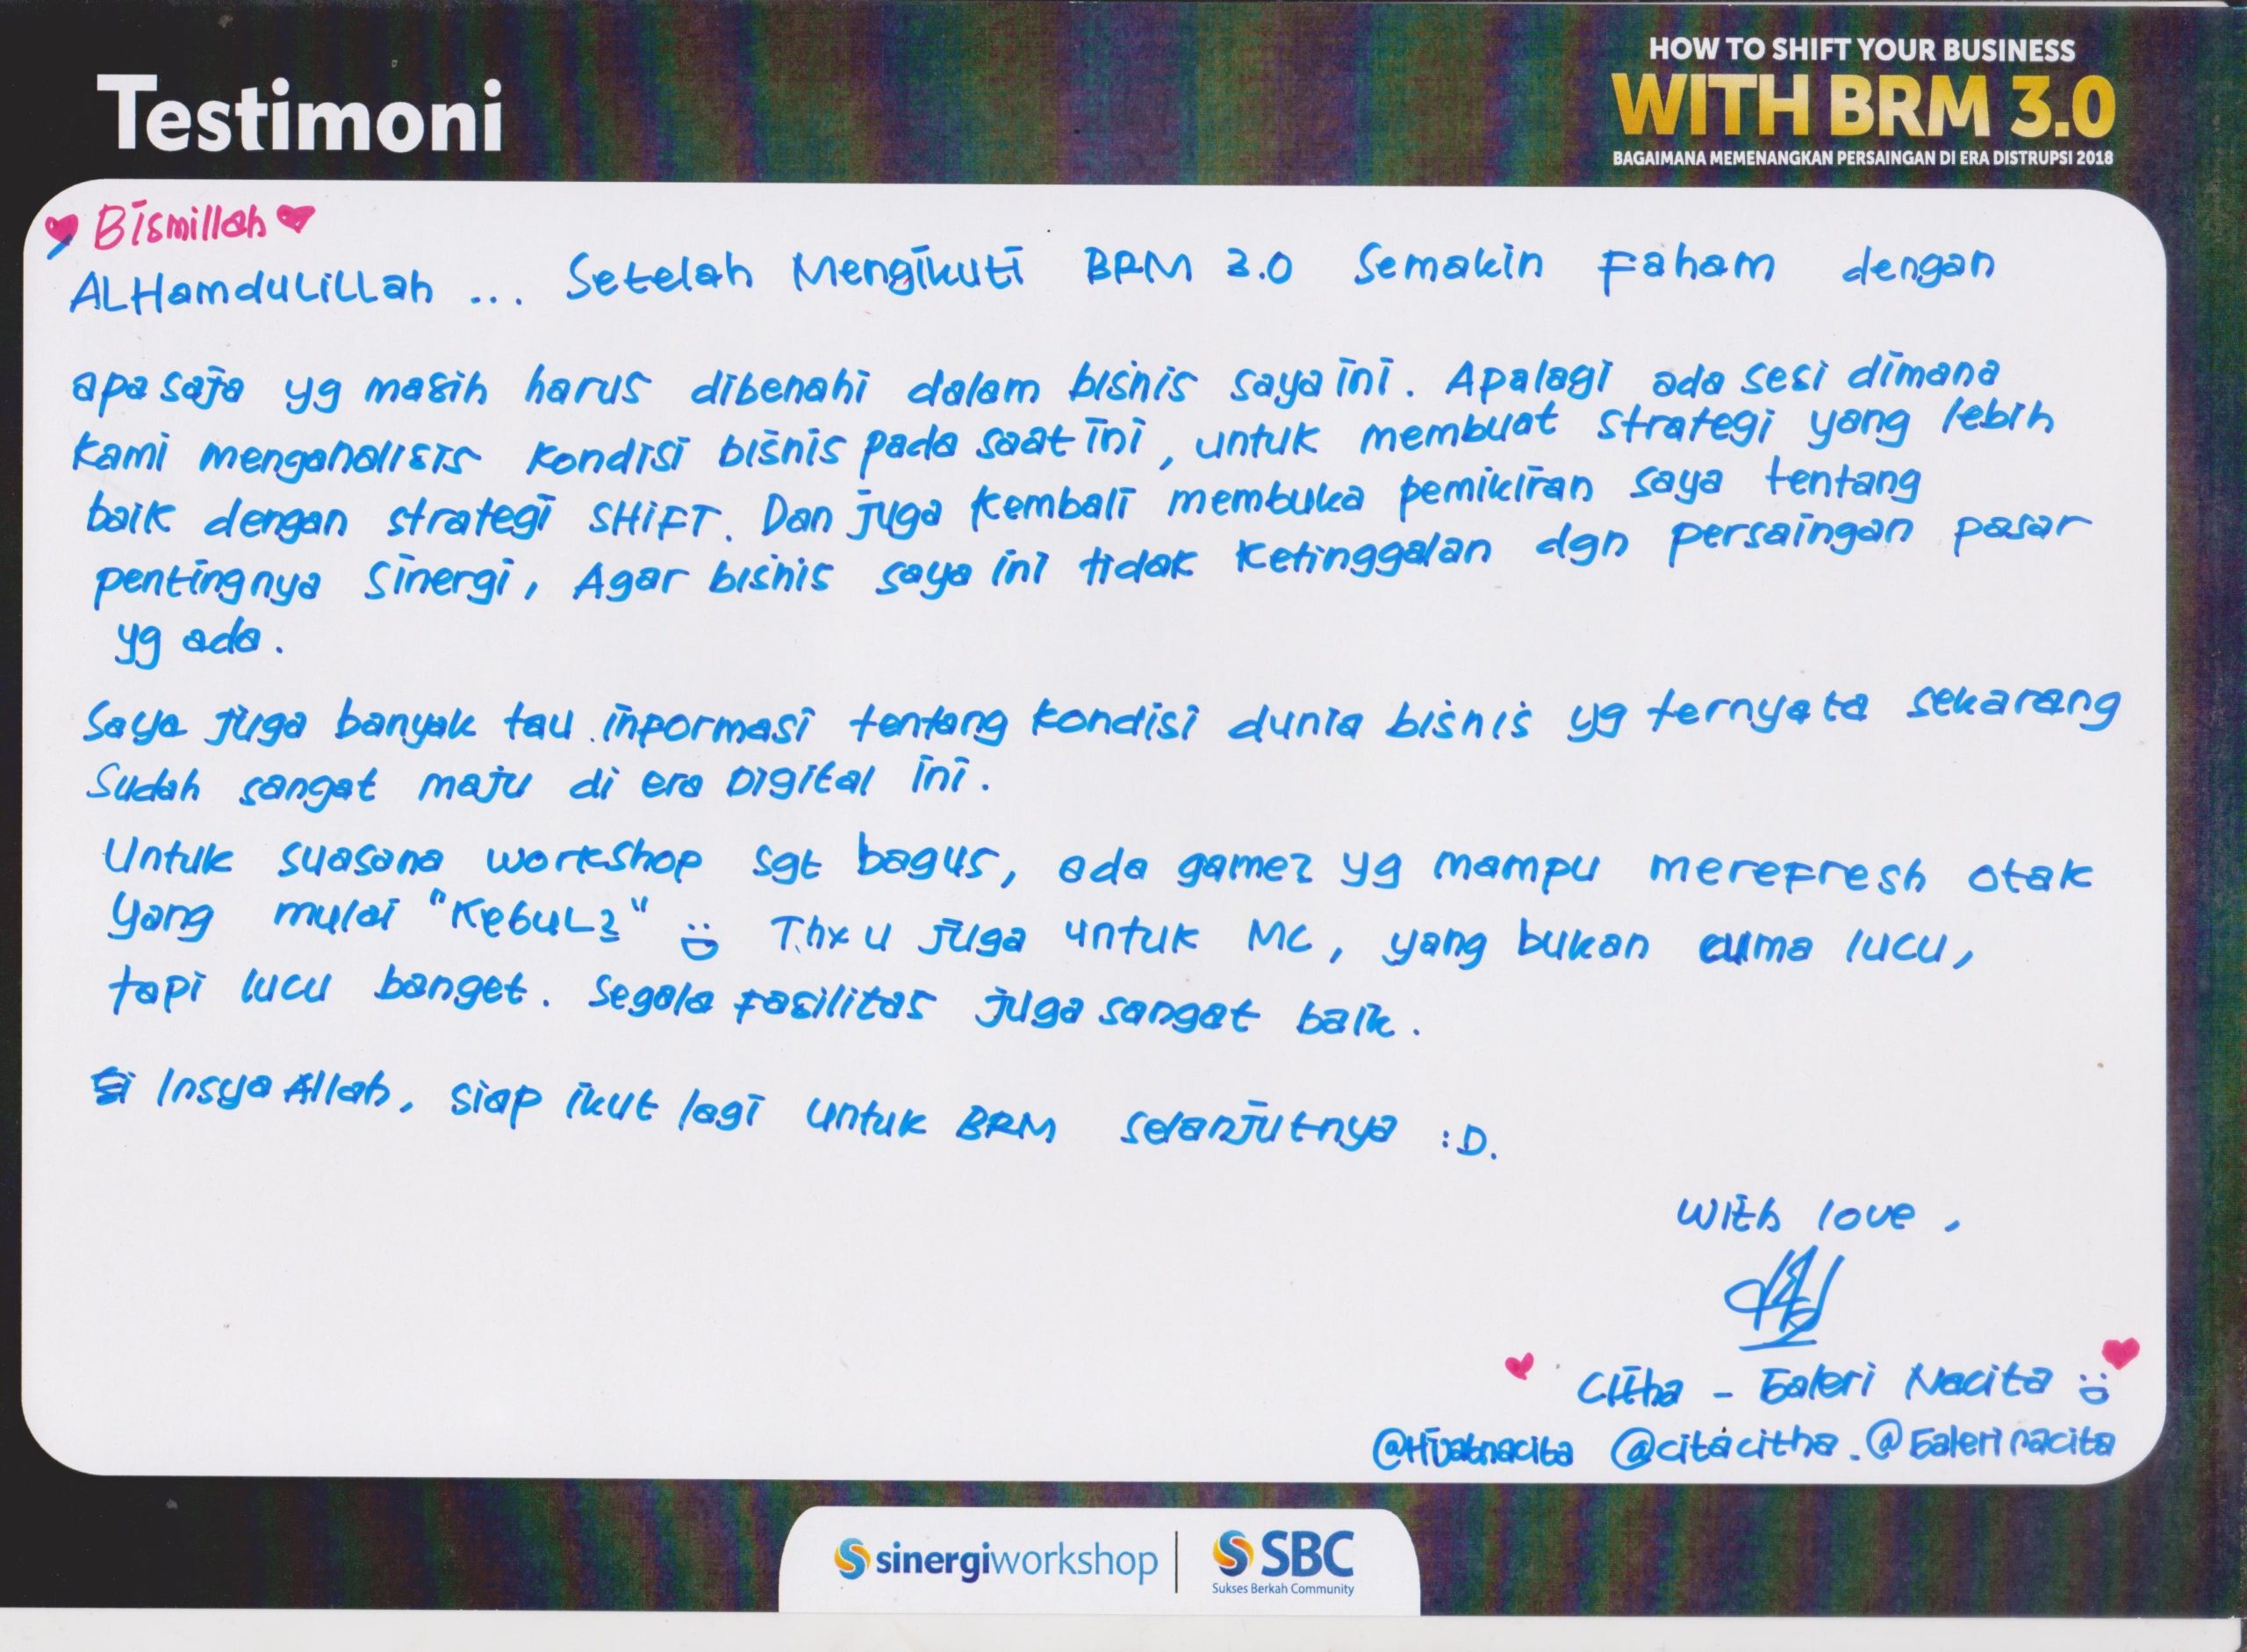 Testimoni
HOW TO SHIFT YOUR BUSINESS
WITH BRM 3.0
BAGAIMANA MEMENANGKAN PERSAINGAN DI ERA DISTRUPSI 2018
Bismillah
ALHamduLiLLah ... Setelah Mengikuti BRM 3.0 Semakin Faham dengan
apa saja yg masih harus dibenahi dalam bisnis saya ini. Apalagi ada sesi dimana
kami menganalisis kondisi bisnis pada saat ini, untuk membuat strategi yang lebih
baik dengan strategi SHiFT. Dan juga kembali membuka pemikiran saya tentang
pentingnya sinergi, Agar bisnis saya ini tidak ketinggalan dgn persaingan pasar
yg ada.
Saya juga banyak tau inpormasi tentang kondisi dunia bisnis yg ternyata sekarang
sudah sangat maju di era Digital ini.
Untuk suasana workshop sgt bagus, ada game2 yg mampu merefresh otak
yang mulai "KebuL2" Thx u juga untuk MC, yang bukan cuma lucu,
tapi lucu banget. Segala fasilitas juga sangat baik.
Insya Allah, siap ikut lagi untuk BRM selanjutnya :D.
With love,
Citha - Galeri Nacita
@Hijabnacita @citacitha. @Galerinacita
sinergiworkshop | SBC
Sukses Berkah Community